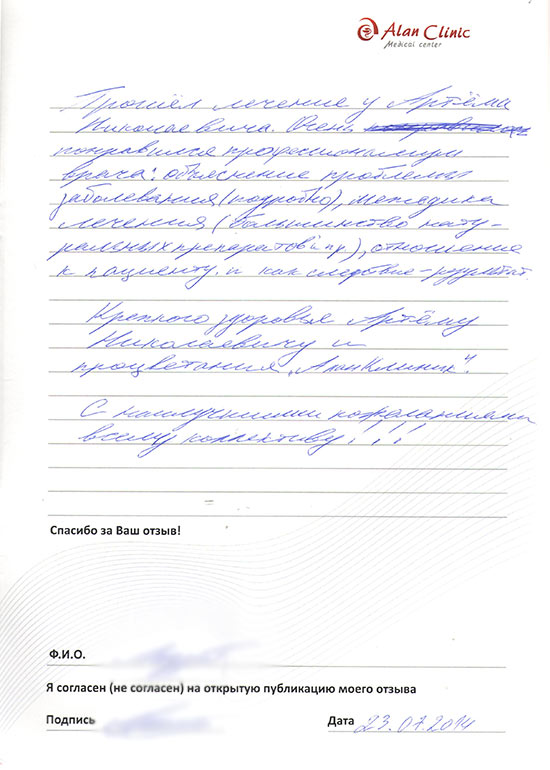 Alan Clinic
Medical center
Прошёл лечение у Артёма
Николаевича. Очень
понравился профессионализм
врача: объяснение проблемы
заболевания (подробно), методика
лечения (большинство нату-
ральных препаратов и пр.), отношение
к пациенту. и как следствие - результат.
Крепкого здоровья Артёму
Николаевичу и
процветания „Алан Клиник".
С наилучшими пожеланиями
всему коллективу!!!
Спасибо за Ваш отзыв!
Ф.И.О.
Я согласен (не согласен) на открытую публикацию моего отзыва
Подпись
Дата 23.07.2014